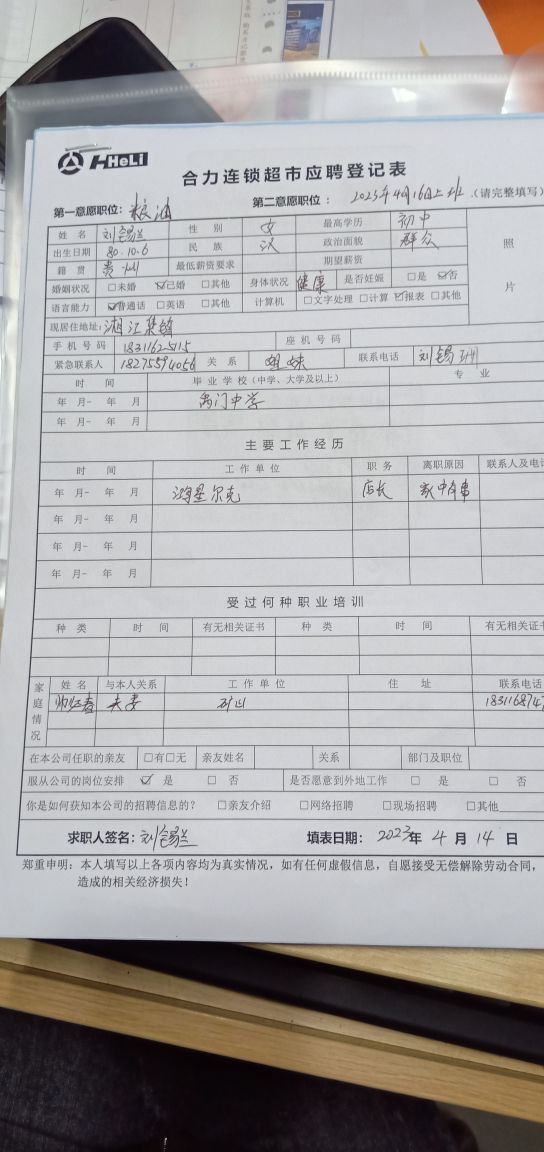 HELI
合力连锁超市应聘登记表
第一意愿职位：粮油 第二意愿职位： 2023年4月16日上班.(请完整填写)
姓 名 刘锡兰 性 别 女 最高学历 初中
出生日期 80.10.6 民 族 汉 政治面貌 群众 照
籍 贯 贵州 最低薪资要求 期望薪资
婚姻状况 □未婚 ☑已婚 □其他 身体状况 健康 是否妊娠 □是 ☑否 片
语言能力 ☑普通话 □英语 □其他 计算机 □文字处理 □计算 ☑报表 □其他
现居住地址: 湘江集锦
手机号码 座机号码
紧急联系人 18275594056 关 系 姐妹 联系电话 刘锡
时 间 毕业学校(中学、大学及以上) 专 业
年 月- 年 月 禹门中学
年 月- 年 月
主要工作经历
时 间 工作单位 职 务 离职原因 联系人及电
年 月- 年 月 鸿星尔克 店长 家中有事
年 月- 年 月
年 月- 年 月
年 月- 年 月
受过何种职业培训
种 类 时 间 有无相关证书 种 类 时 间 有无相关证
家庭情况 姓 名 与本人关系 工 作 单 位 住 址 联系电话
夫妻 矿山 18311687
在本公司任职的亲友 □有□无 亲友姓名 关系 部门及职位
服从公司的岗位安排 ☑ 是 □ 否 是否愿意到外地工作 □ 是 □ 否
你是如何获知本公司的招聘信息的？ □亲友介绍 □网络招聘 □现场招聘 □其他
求职人签名：刘锡兰 填表日期：2023年 4 月 14 日
郑重申明：本人填写以上各项内容均为真实情况，如有任何虚假信息，自愿接受无偿解除劳动合同，
造成的相关经济损失！